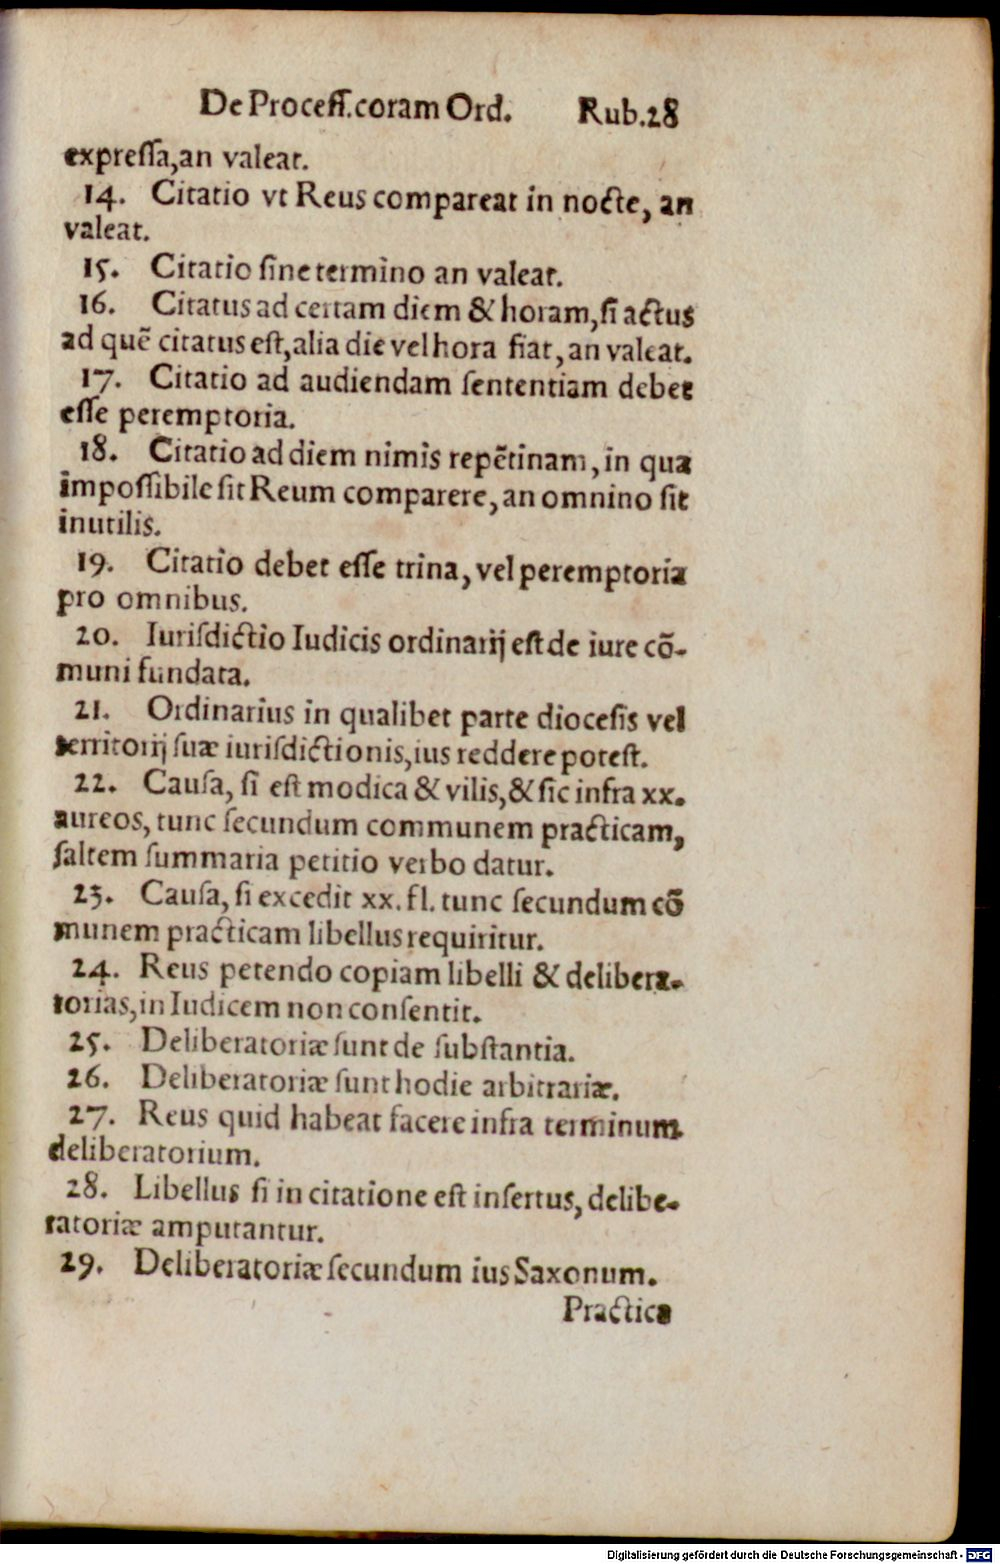 De Proceſſ. coram Ord. Rub. 28
expreſſa, an valeat.
14. Citatio vt Reus compareat in nocte, an
valeat.
15. Citatio ſine termino an valeat.
16. Citatus ad certam diem & horam, ſi actus
ad quē citatus eſt, alia die vel hora fiat, an valeat.
17. Citatio ad audiendam ſententiam debet
eſſe peremptoria.
18. Citatio ad diem nimis repētinam, in qua
impoſſibile ſit Reum comparere, an omnino ſit
inutilis.
19. Citatio debet eſſe trina, vel peremptoria
pro omnibus.
20. Iuriſdictio Iudicis ordinarij eſt de iure cō-
muni fundata.
21. Ordinarius in qualibet parte dioceſis vel
territorij ſuæ iuriſdictionis, ius reddere poteſt.
22. Cauſa, ſi eſt modica & vilis, & ſic infra xx.
aureos, tunc ſecundum communem practicam,
ſaltem ſummaria petitio verbo datur.
23. Cauſa, ſi excedit xx. fl. tunc ſecundum cō
munem practicam libellus requiritur.
24. Reus petendo copiam libelli & delibera-
torias, in Iudicem non conſentit.
25. Deliberatoriæ ſunt de ſubſtantia.
26. Deliberatoriæ ſunt hodie arbitrariæ.
27. Reus quid habeat facere infra terminum
deliberatorium.
28. Libellus ſi in citatione eſt inſertus, delibe-
ratoriæ amputantur.
29. Deliberatoriæ ſecundum ius Saxonum.
Practica
Digitalisierung gefördert durch die Deutsche Forschungsgemeinschaft - DFG